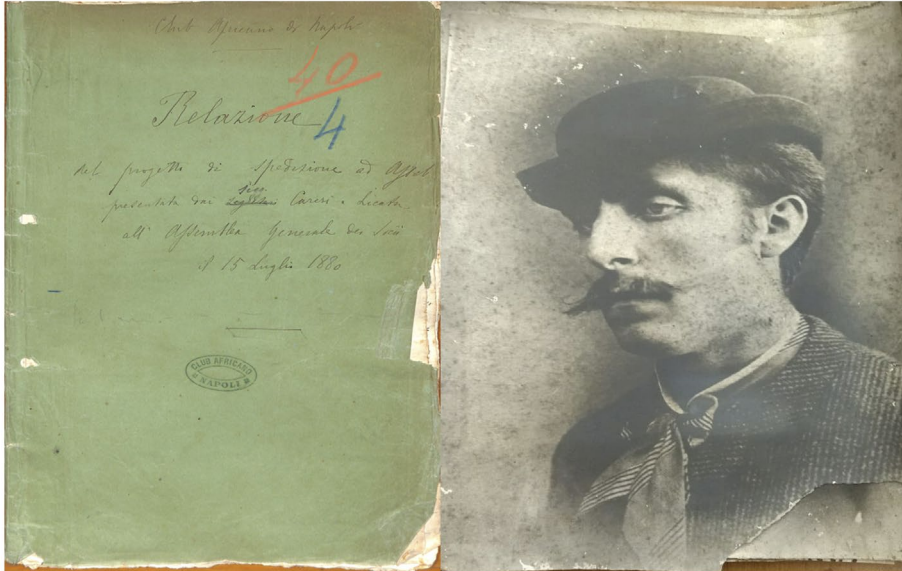 Club Africano di Napoli
40
Relazione
4
del progetto di spedizione ad Assab
presentata dai Soci Careri e Licata
all' Assemblea Generale dei Soci
il 15 Luglio 1880
CLUB AFRICANO
NAPOLI